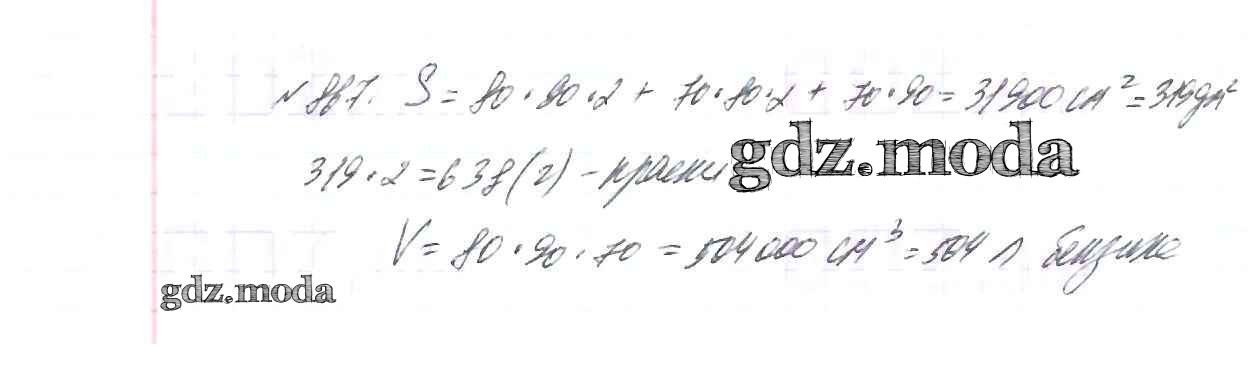 № 867. S = 80·90·2 + 70·80·2 + 70·90 = 31900 см² = 319 дм²
gdz.moda
319·2 = 638 (г) - краски
V = 80·90·70 = 504000 см³ = 504 л бензина
gdz.moda